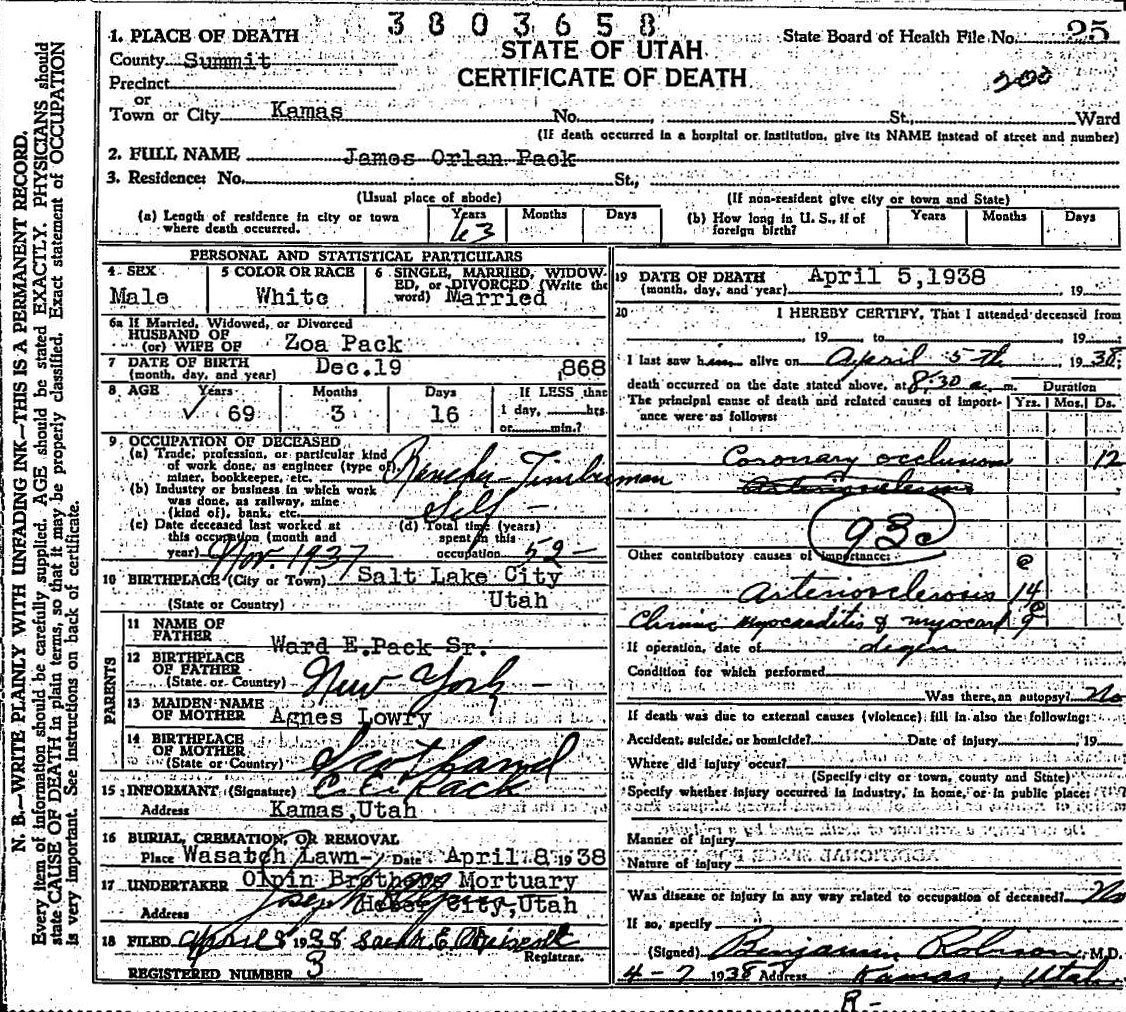 3803658
1. PLACE OF DEATH
STATE OF UTAH
CERTIFICATE OF DEATH
State Board of Health File No. 25
200
County Summit
Precinct
or
Town or City Kamas No. St., Ward
(If death occurred in a hospital or institution, give its NAME instead of street and number)
2. FULL NAME James Orlan Pack
3. Residence: No. St.,
(Usual place of abode) (If non-resident give city or town and State)
(a) Length of residence in city or town where death occurred. Years 63 Months Days
(b) How long in U. S., if of foreign birth? Years Months Days
PERSONAL AND STATISTICAL PARTICULARS
4 SEX Male
5 COLOR OR RACE White
6 SINGLE, MARRIED, WIDOWED, or DIVORCED (Write the word) Married
6a If Married, Widowed, or Divorced
HUSBAND OF
(or) WIFE OF Zoa Pack
7 DATE OF BIRTH
(month, day, and year) Dec.19 868
8 AGE Years 69 Months 3 Days 16
If LESS than
1 day, hrs
or min.?
9 OCCUPATION OF DECEASED
(a) Trade, profession, or particular kind
of work done, as engineer (type of),
miner, bookkeeper, etc. Rancher-Timberman
(b) Industry or business in which work
was done, as railway, mine
(kind of), bank, etc. Self -
(c) Date deceased last worked at
this occupation (month and
year) Nov. 1937
(d) Total time (years)
spent in this
occupation 52-
10 BIRTHPLACE (City or Town) Salt Lake City
(State or Country) Utah
PARENTS
11 NAME OF
FATHER Ward E.Pack Sr.
12 BIRTHPLACE
OF FATHER
(State or Country) New York -
13 MAIDEN NAME
OF MOTHER Agnes Lowry
14 BIRTHPLACE
OF MOTHER
(State or Country) Scotland
15 INFORMANT (Signature) Pack
Address Kamas,Utah
16 BURIAL, CREMATION, OR REMOVAL
Place Wasatch Lawn- Date April 8 1938
17 UNDERTAKER Olpin Brothers Mortuary
Address Heber City,Utah
18 FILED April 8 1938
Registrar.
REGISTERED NUMBER 3
19 DATE OF DEATH April 5,1938
(month, day, and year) , 19
20 I HEREBY CERTIFY, That I attended deceased from
, 19 to , 19
I last saw him alive on April 5th 1938,
death occurred on the date stated above, at 8:30 a. m.
Duration
The principal cause of death and related causes of importance were as follows: Yrs. Mos. Ds.
Coronary occlusion 12
Arteriosclerosis
93c
Other contributory causes of importance:
Arteriosclerosis 14
Chronic myocarditis & myocard 9
degen
If operation, date of
Condition for which performed
Was there an autopsy? No
If death was due to external causes (violence) fill in also the following:
Accident, suicide, or homicide? Date of injury , 19
Where did injury occur?
(Specify city or town, county and State)
Specify whether injury occurred in industry, in home, or in public place:
Manner of injury
Nature of injury
Was disease or injury in any way related to occupation of deceased? No
If so, specify
(Signed) Benjamin Robison, M.D.
4-7 1938 Address Kamas, Utah
R-
N. B.—WRITE PLAINLY WITH UNFADING INK—THIS IS A PERMANENT RECORD.
Every item of information should be carefully supplied. AGE should be stated EXACTLY. PHYSICIANS should
state CAUSE OF DEATH in plain terms, so that it may be properly classified. Exact statement of OCCUPATION
is very important. See instructions on back of certificate.